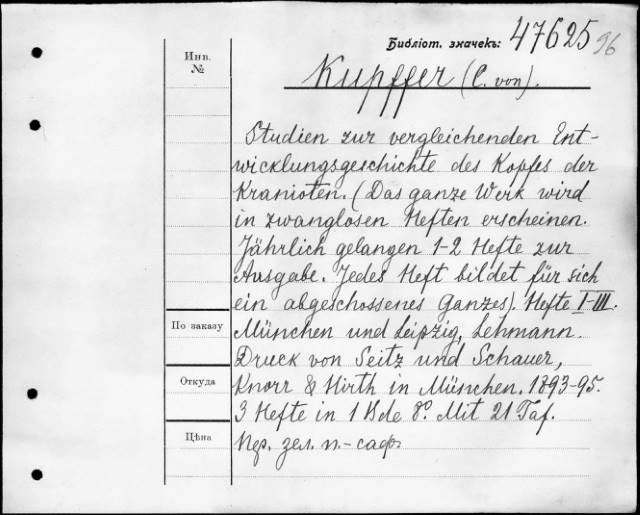 Библіот. значекъ: 47625 96
Инв. №
Kupffer (C. von).
Studien zur vergleichenden Ent-
wicklungsgeschichte des Kopfes der
Kranioten. (Das ganze Werk wird
in zwanglosen Heften erscheinen.
Jährlich gelangen 1-2 Hefte zur
Ausgabe. Jedes Heft bildet für sich
ein abgeschossenes Ganzes). Hefte I-III.
По заказу
München und Leipzig, Lehmann.
Druck von Seitz und Schauer,
Откуда
Knorr & Hirth in München, 1893-95.
3 Hefte in 1 Bde 8º. Mit 21 Taf.
Цѣна
Кор. зел. п.-саф.